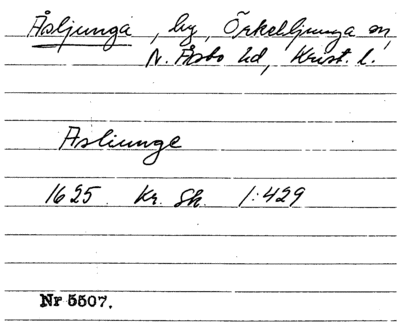 Åsljunga, by, Örkelljunga sn,
N. Åsbo hd, Krist. l.
Asliunge
1625 Kr. Sk. 1:429
Nr 5507.